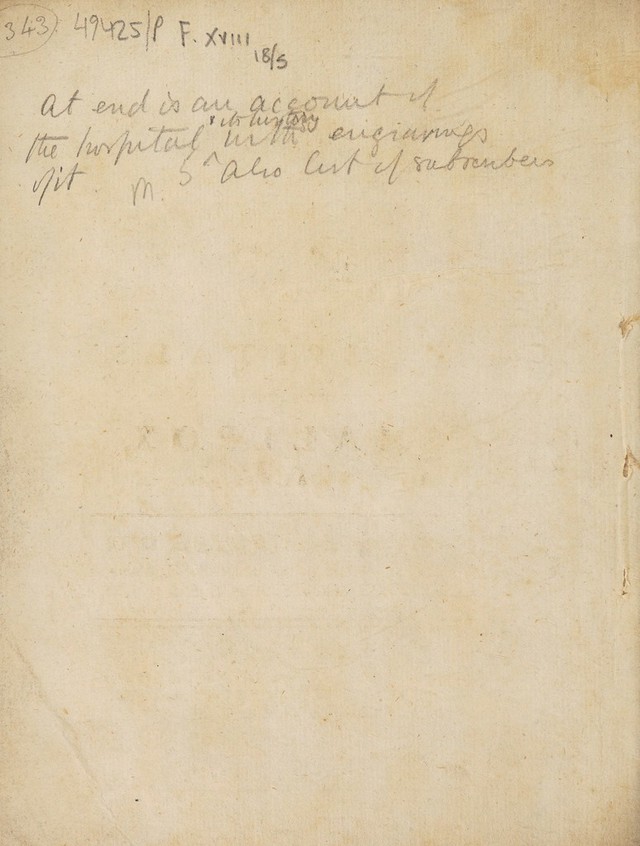 343 49425/P F. XVIII
18/5
At end is an account of
& its history
the hospital with engravings
of it ^ Also list of subscribers
M.